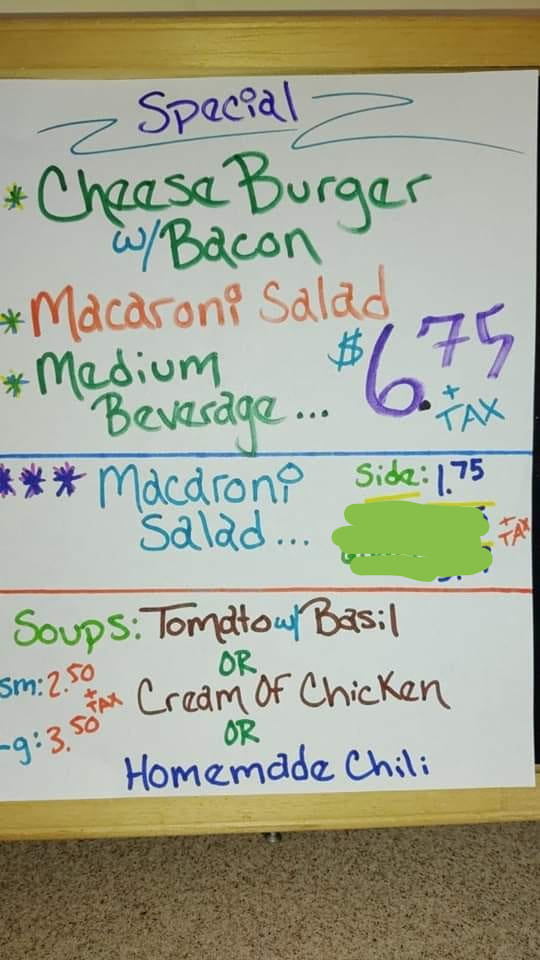 Special
* Cheese Burger
w/ Bacon
* Macaroni Salad
* Medium
Beverage... $6.75
+ TAX
*** Macaroni Side: 1.75
Salad...
+ TAX
Soups: Tomato w/ Basil
OR
sm: 2.50 + TAX Cream OF Chicken
OR
-g: 3.50
Homemade Chili